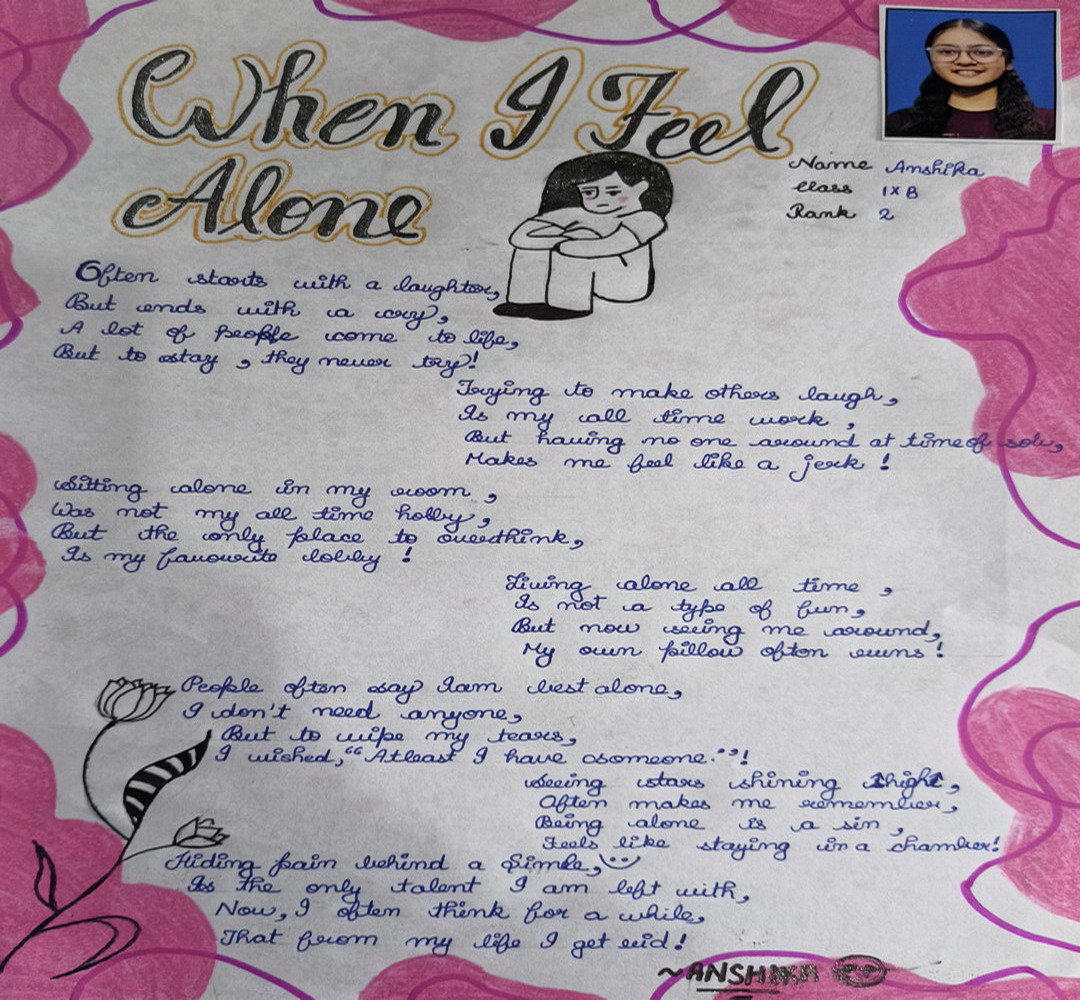 When I Feel
Alone
Name Anshika
Class IX B
Rank 2
Often starts with a laughter,
But ends with a cry,
A lot of people come to life,
But to stay, they never try!
Trying to make others laugh,
Is my all time work,
But having no one around at time of sob,
Makes me feel like a jerk!
Sitting alone in my room,
Was not my all time hobby,
But the only place to overthink,
Is my favourite lobby!
Living alone all time,
Is not a type of fun,
But now seeing me around,
My own pillow often runs!
People often say I am best alone,
I don't need anyone,
But to wipe my tears,
I wished, "Atleast I have someone."!
Seeing stars shining
Often makes me remember,
Being alone is a sin,
Feels like staying in a chamber!
Hiding pain behind a Simle,
Is the only talent I am left with,
Now, I often think for a while,
That from my life I get rid!
~ANSHIKA